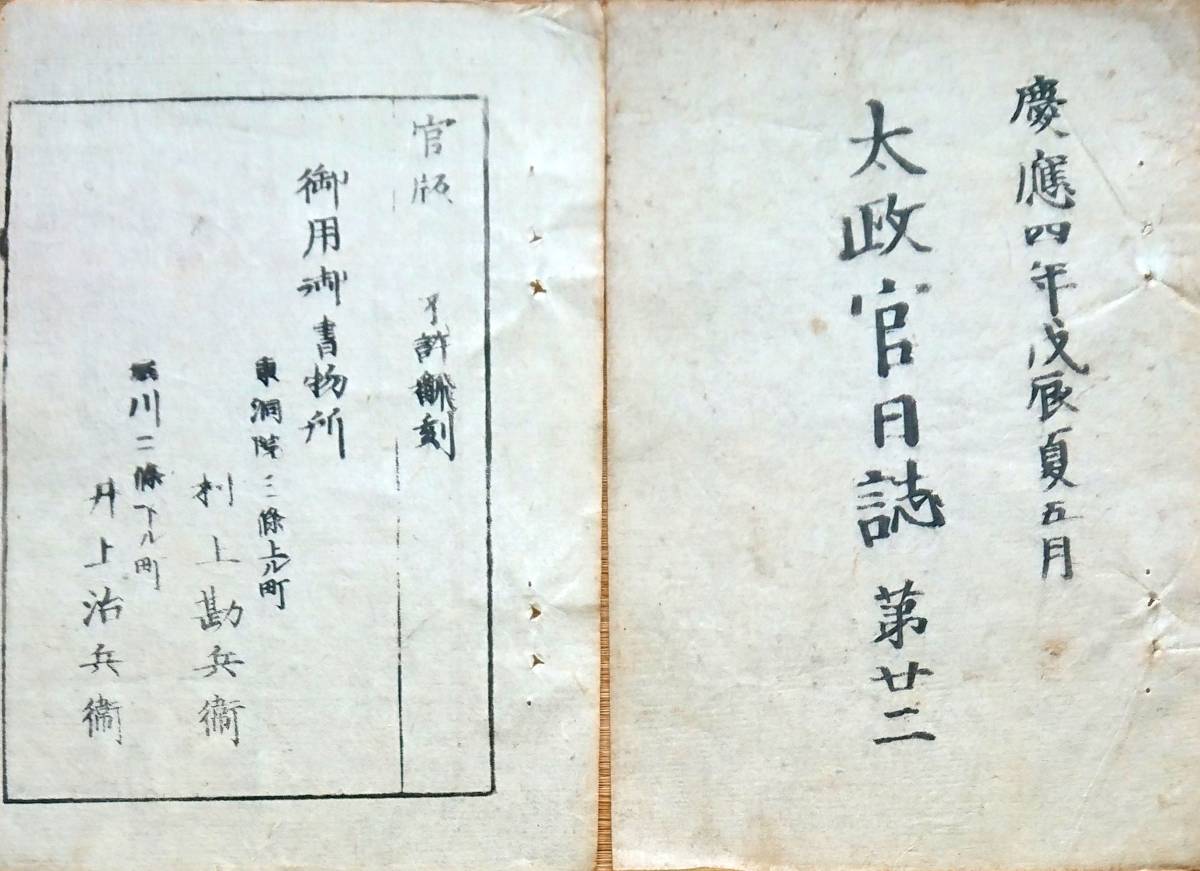 慶應四年戊辰夏五月
太政官日誌 第廿二
官版 不許飜刻
御用御書物所
東洞院三條上ル町
村上勘兵衞
川二條下ル町
井上治兵衞